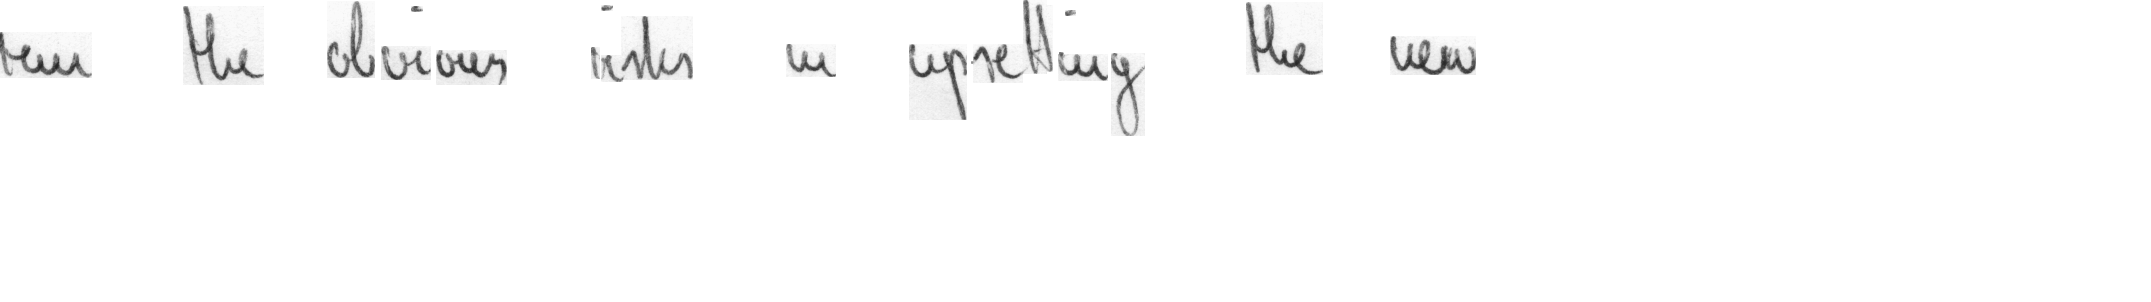 the obvious risks in upsetting the new